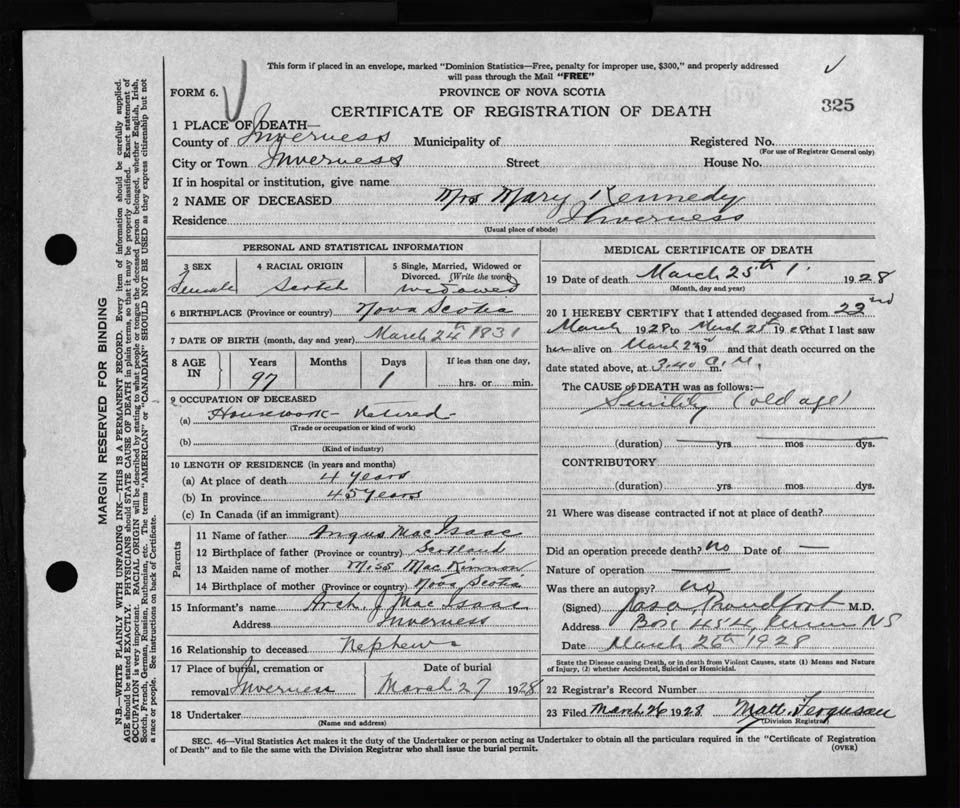 This form if placed in an envelope, marked "Dominion Statistics—Free, penalty for improper use, $300," and properly addressed
will pass through the Mail "FREE"
FORM 6.
PROVINCE OF NOVA SCOTIA
CERTIFICATE OF REGISTRATION OF DEATH
325
1 PLACE OF DEATH—
County of Inverness Municipality of Registered No.
(For use of Registrar General only)
City or Town Inverness Street House No.
If in hospital or institution, give name
2 NAME OF DECEASED Mrs Mary Kennedy
Residence Inverness
(Usual place of abode)
PERSONAL AND STATISTICAL INFORMATION
3 SEX 4 RACIAL ORIGIN 5 Single, Married, Widowed or
Divorced. (Write the word)
Female Scotch widowed
6 BIRTHPLACE (Province or country) Nova Scotia
7 DATE OF BIRTH (month, day and year) March 24th 1831
8 AGE IN Years Months Days If less than one day,
97 1 hrs. or min.
9 OCCUPATION OF DECEASED
(a) Housework - Retired
(Trade or occupation or kind of work)
(b)
(Kind of industry)
10 LENGTH OF RESIDENCE (in years and months)
(a) At place of death 4 years
(b) In province 45 years
(c) In Canada (if an immigrant)
Parents
11 Name of father Angus MacIsaac
12 Birthplace of father (Province or country) Scotland
13 Maiden name of mother Miss MacKinnon
14 Birthplace of mother (Province or country) Nova Scotia
15 Informant's name Arch. J. MacIsaac
Address Inverness
16 Relationship to deceased Nephew
17 Place of burial, cremation or Date of burial
removal Inverness March 27 1928
18 Undertaker
(Name and address)
MEDICAL CERTIFICATE OF DEATH
19 Date of death March 25th 1928
(Month, day and year)
20 I HEREBY CERTIFY that I attended deceased from 22nd
March 1928 to March 25th 1928 that I last saw
her alive on March 19 and that death occurred on
date stated above, at 3.40 a.m. m.
The CAUSE of DEATH was as follows:—
Senility (old age)
(duration) yrs mos dys.
CONTRIBUTORY
(duration) yrs. mos. dys.
21 Where was disease contracted if not at place of death?
Did an operation precede death? no Date of —
Nature of operation
Was there an autopsy? no
(Signed) M.D.
Address Box 454 NS
Date March 26th 1928
State the Disease causing Death, or in death from Violent Causes, state (1) Means and Nature
of Injury, (2) whether Accidental, Suicidal or Homicidal.
22 Registrar's Record Number
23 Filed March 26 1928 Matt. Ferguson
(Division Registrar)
SEC. 46—Vital Statistics Act makes it the duty of the Undertaker or person acting as Undertaker to obtain all the particulars required in the "Certificate of Registration
of Death" and to file the same with the Division Registrar who shall issue the burial permit.
(OVER)
MARGIN RESERVED FOR BINDING
N.B.—WRITE PLAINLY WITH UNFADING INK—THIS IS A PERMANENT RECORD. Every item of information should be carefully supplied.
AGE should be stated EXACTLY. PHYSICIANS should STATE CAUSE OF DEATH in plain terms, so that it may be properly classified. Exact statement of
OCCUPATION is very important. RACIAL ORIGIN will be described by stating to what people or tongue the deceased person belonged, whether English, Irish,
Scotch, French, German, Russian, Ruthenian, etc. The terms "AMERICAN" or "CANADIAN" SHOULD NOT BE USED as they express citizenship but not
a race or people. See instructions on back of Certificate.